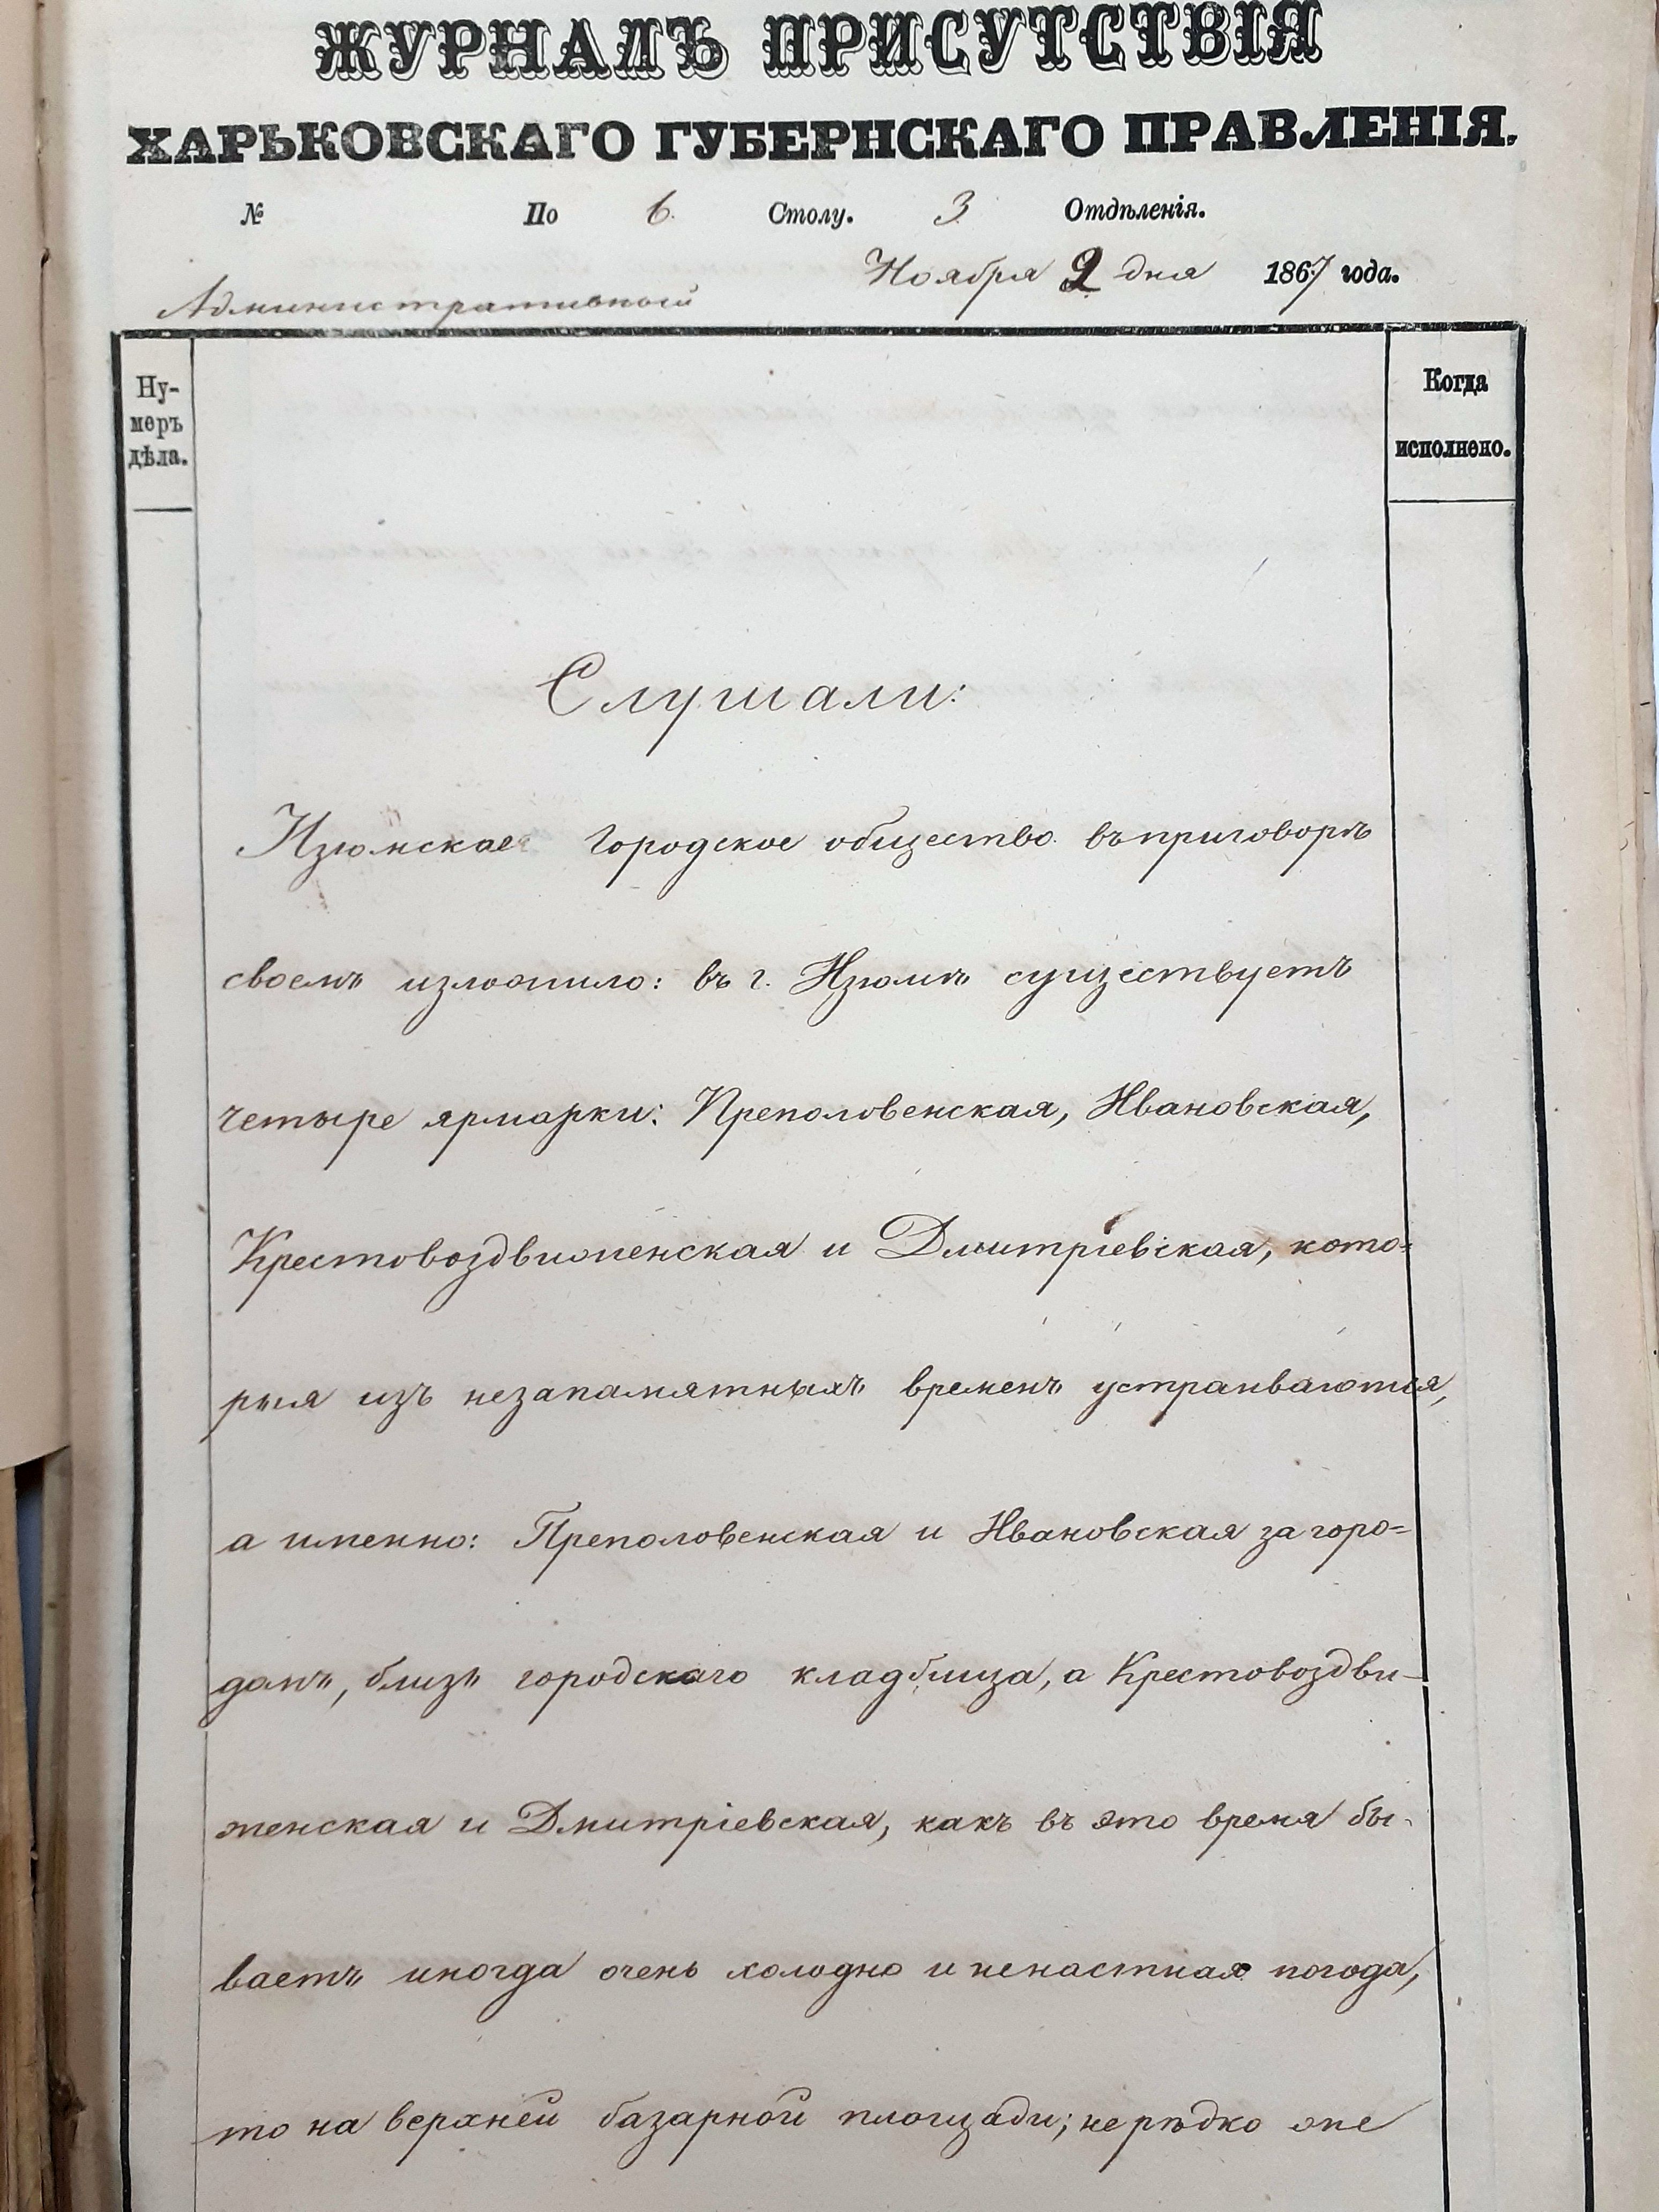 ЖУРНАЛЪ ПРИСУТСТВІЯ
ХАРЬКОВСКАГО ГУБЕРНСКАГО ПРАВЛЕНІЯ.
№ По 6. Столу. 3 Отдѣленія.
Ноября 2 дня 1867 года.
Административной
Ну-
меръ
дѣла.
Когда
исполнено.
Слушали:
Изюмское Городское общество въ приговорѣ
своемъ изложило: въ г. Изюмѣ существуетъ
четыре ярмарки: Преполовенская, Ивановская,
Крестовоздвиженская и Дмитріевская, кото=
рыя изъ незапамятныхъ временъ устраиваются,
а именно: Преполовенская и Ивановская за горо=
домъ, близъ городскаго кладбища, а Крестовоздви-
женская и Дмитріевская, какъ въ это время бы-
ваетъ иногда очень холодно и ненастная погода,
то на верхней базарной площади; нерѣдко же